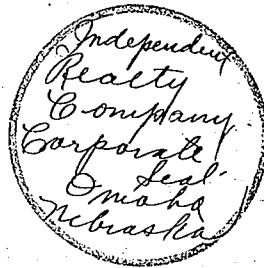 Independent
Realty
Company
Corporate
Seal
Omaha
Nebraska